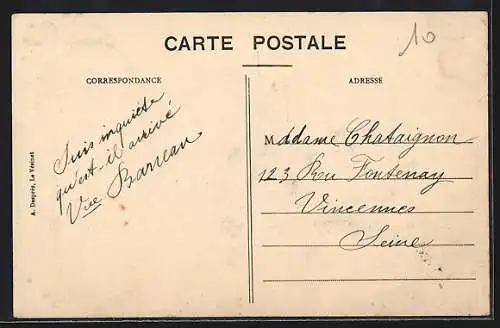 CARTE POSTALE
10
CORRESPONDANCE
ADRESSE
Suis inquiète
qu'est-il arrivé
Vve Barreau
Madame Chataignon
123 Rue Fontenay
Vincennes
Seine
A. Desprès, Le Vésinet